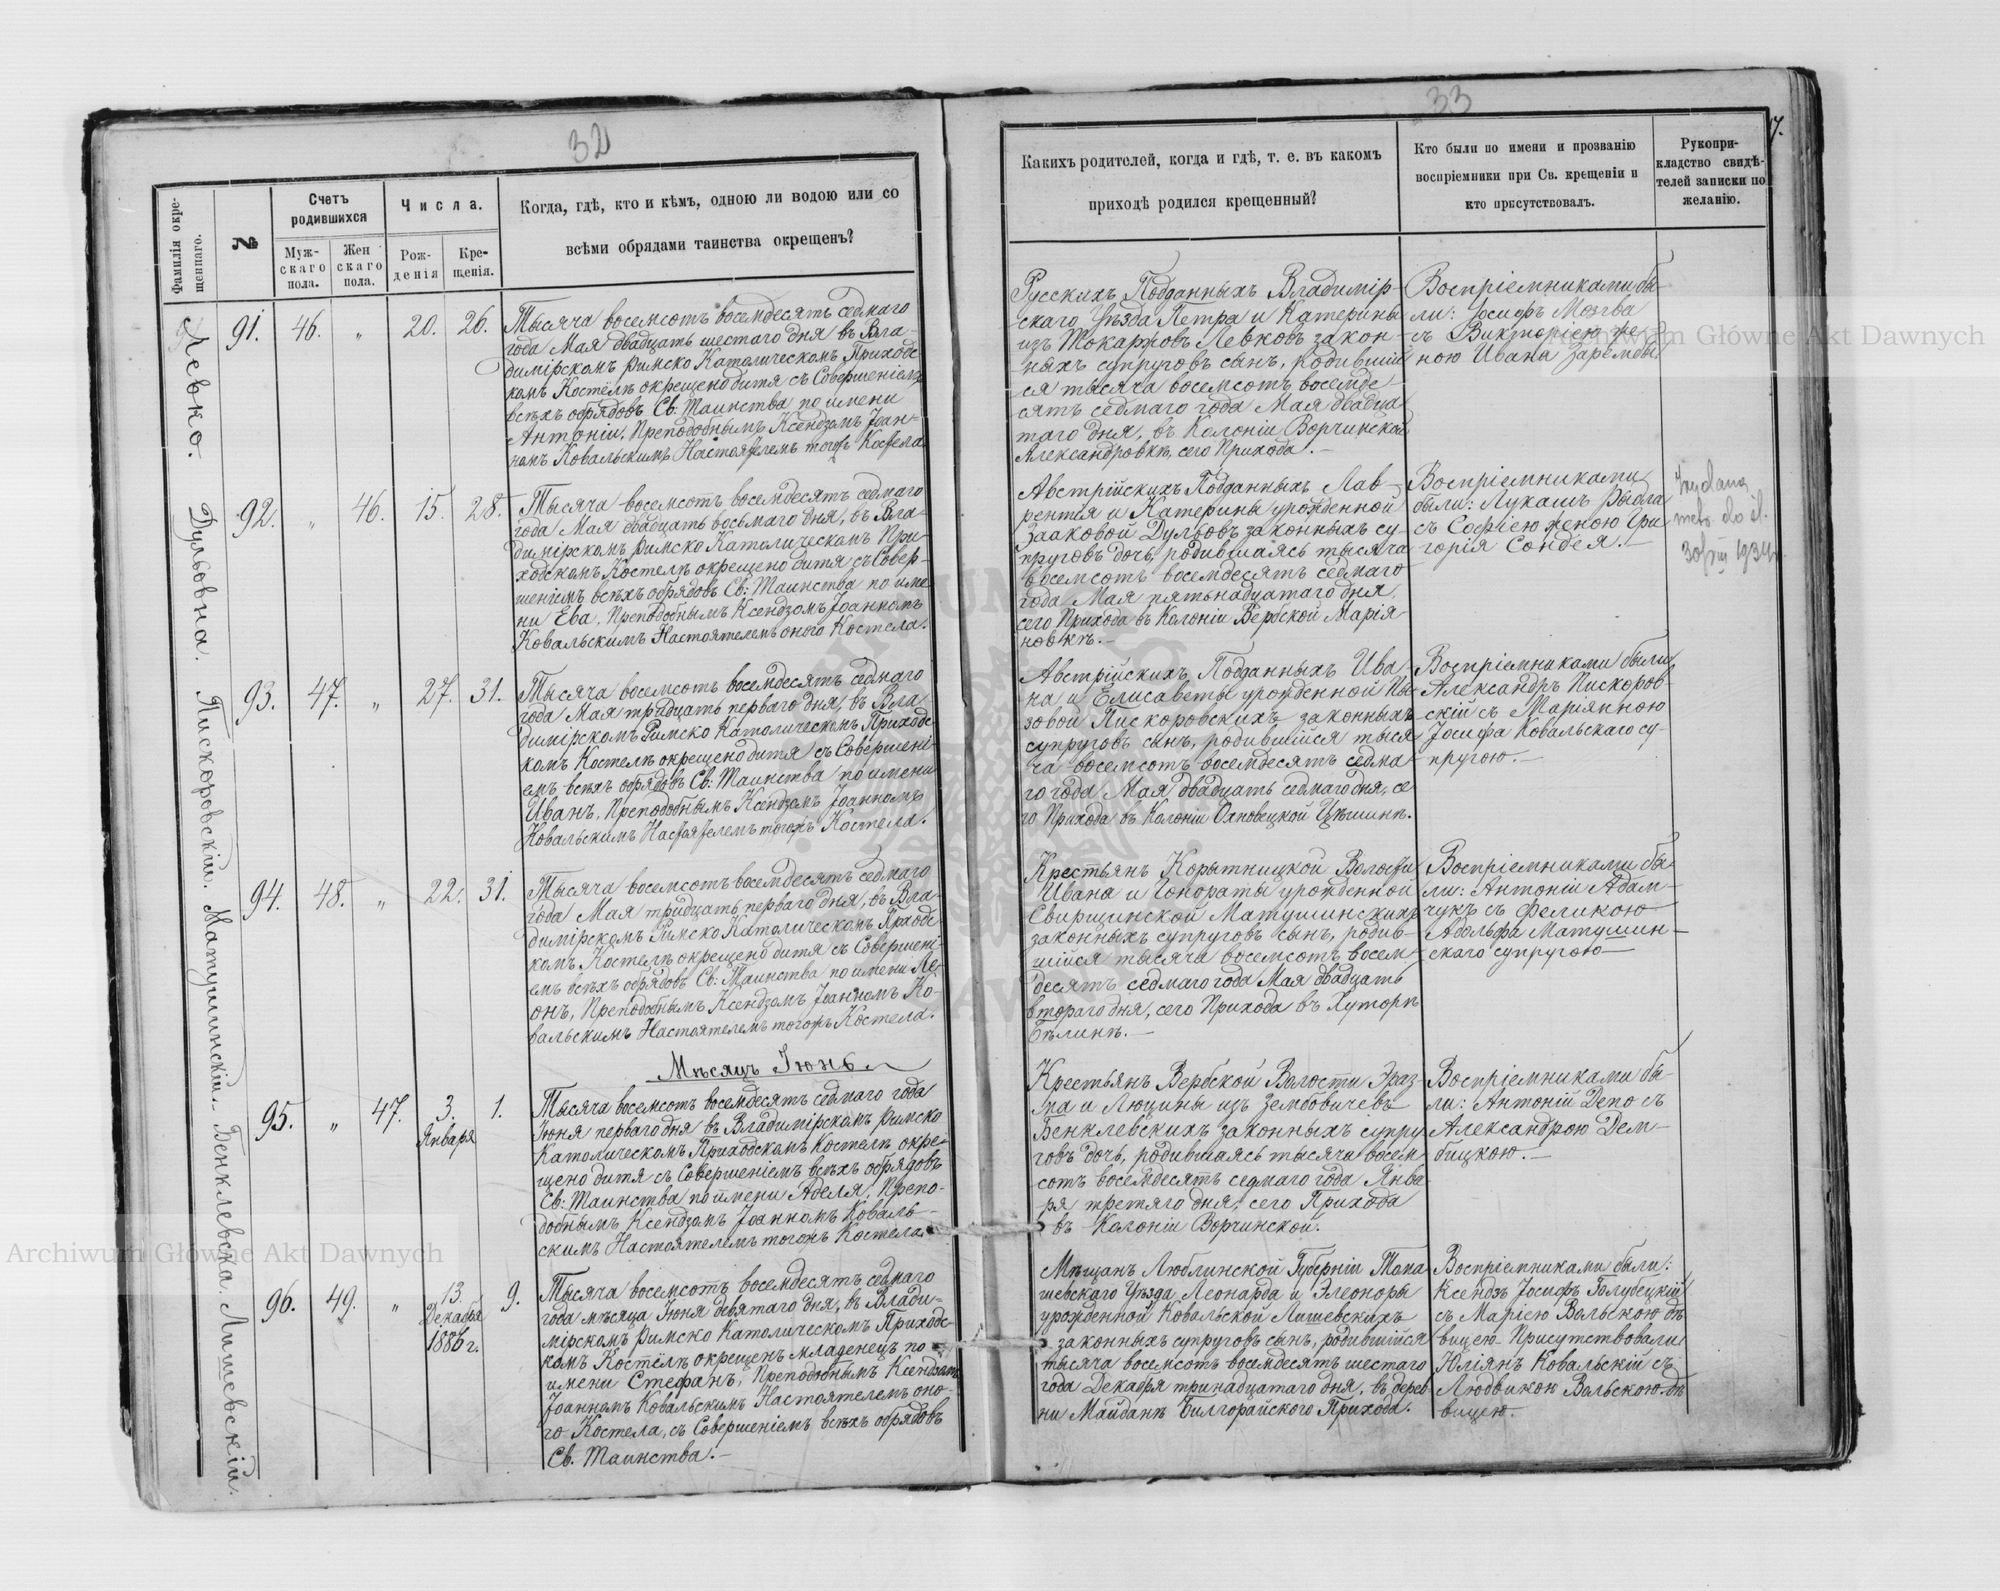 32
Фамилія окре-
щеннаго.
№
Счетъ
родившихся
Муж-
скаго
пола.
Жен
скаго
пола.
Числа.
Рож-
денія
Кре-
щенія.
Когда, гдѣ, кто и кѣмъ, одною ли водою или со
всѣми обрядами таинства окрещенъ?
Левко.
91. 46. „ 20. 26.
Тысяча восемсотъ восемдесятъ седмаго
года Мая двадцать шестаго дня въ Вла-
димірскомъ Римско Католическомъ Приходс
комъ Костелѣ окрещено дитя съ Совершеніемъ
всѣхъ обрядовъ Св: Таинства по имени
Антоній, Преподобнымъ Ксендзомъ Іоан-
номъ Ковальскимъ Настоятелемъ тогожъ Костела
Дульбовна.
92. „ 46. 15. 28.
Тысяча восемсотъ восемдесятъ седмаго
года Мая двадцать восьмаго дня, въ Вла-
димірскомъ Римско Католическомъ При-
ходскомъ Костелѣ окрещено дитя съ Совер-
шеніемъ всѣхъ обрядовъ Св: Таинства по име
ни Ева, Преподобнымъ Ксендзомъ Іоанномъ
Ковальскимъ Настоятелемъ оного Костела.
Пискоровскій.
93. 47. „ 27. 31.
Тысяча восемсотъ восемдесятъ седмаго
года Мая тридцать перваго дня, въ Вла
димірскомъ Римско Католическомъ Приходс-
комъ Костелѣ окрещено дитя съ Совершені-
емъ всѣхъ обрядовъ Св: Таинства по имени
Иванъ, Преподобнымъ Ксендзомъ Іоанномъ
Ковальскимъ Настоятелемъ тогожъ Костела.
Матушинскій.
94. 48. „ 22. 31.
Тысяча восемсотъ восемдесятъ седмаго
года Мая тридцать перваго дня, въ Вла-
димірскомъ Римско Католическомъ Приходс
комъ Костелѣ окрещено дитя съ Совершені-
емъ всѣхъ обрядовъ Св: Таинства по имени Ле-
онъ, Преподобнымъ Ксендзомъ Іоанномъ Ко-
вальскимъ Настоятелемъ тогожъ Костела.
Мѣсяцъ Іюнь
Бенклевска.
95. „ 47. 3. Января 1.
Тысяча восемсотъ восемдесятъ седмаго года
Іюня перваго дня въ Владимірскомъ Римско
Католическомъ Приходскомъ Костелѣ окре-
щено дитя съ Совершеніемъ всѣхъ обрядовъ
Св: Таинства по имени Аделя, Препо-
добнымъ Ксендзомъ Іоанномъ Коваль-
скимъ Настоятелемъ тогожъ Костела
Лишевскій.
96. 49. „ 13. Декабря 1886 г. 9.
Тысяча восемсотъ восемдесятъ седмаго
года мѣсяца Іюня девятаго дня, въ Влади-
мірскомъ Римско Католическомъ Приходс-
комъ Костелѣ окрещенъ младенецъ по
имени Стефанъ, Преподобнымъ Ксендзомъ
Іоанномъ Ковальскимъ Настоятелемъ оно-
го Костела, съ Совершеніемъ всѣхъ обрядовъ
Св. Таинства.—
33
17.
Какихъ родителей, когда и гдѣ, т. е. въ какомъ
приходѣ родился крещенный?
Кто были по имени и прозванію
воспріемники при Св. крещеніи и
кто присутствовалъ.
Рукопри-
кладство свидѣ-
телей записки по
желанію.
Русскихъ Подданныхъ Владимір-
скаго Уѣзда Петра и Катерины
изъ Токаржовъ Левковъ закон-
ныхъ супруговъ сынъ, родивший
ся тысяча восемсотъ восемде
сятъ седмаго года Мая двадца
таго дня, въ Колоніи Ворчинской
Александровкѣ, сего Прихода.—
Воспріемниками бы
ли: Іосифъ Мозгва
съ Викторіею же-
ною Ивана Зарембы
Австрійскихъ Подданныхъ Лав-
рентія и Катерины урожденной
Зааковой Дулбовъ законныхъ су-
пруговъ дочь, родившаясь тысяча
восемсотъ восемдесятъ седмаго
года Мая пятьнадцатаго дня,
сего Прихода въ Колоніи Вербской Марія-
новкѣ.—
Воспріемниками
были: Лукашъ Рыбла
съ Софіею женою Гри
горія Сондея.—
1934
Австрійскихъ Подданныхъ Ива-
на и Елисаветы урожденной Пы-
зовой Пискоровскихъ законныхъ
супруговъ сынъ, родившійся тыся
ча восемсотъ восемдесятъ седма
го года Мая двадцать седмаго дня, се
го Прихода въ Колоніи Охновецкой Цѣшинѣ.
Воспріемниками были
Александръ Пискоров-
скій съ Маріянною
Іосифа Ковальскаго су-
пругою.—
Крестьянъ Корытницкой Волости
Ивана и Гонораты урожденной
Свирщинской Матушинскихъ
законныхъ супруговъ сынъ, родив-
шійся тысяча восемсотъ восем-
десятъ седмаго года Мая двадцать
втораго дня, сего Прихода въ Хуторѣ
Бѣлинѣ.—
Воспріемниками бы-
ли: Антоній Адам-
чукъ съ Феликою
Адольфа Матушин-
скаго супругою—
Крестьянъ Вербской Волости Эраз
ма и Люцины изъ Зембовичевъ
Бенклевскихъ законныхъ супру
говъ дочь, родившаясь тысяча восем
сотъ восемдесятъ седмаго года Янва
ря третяго дня, сего Прихода
въ Колоніи Ворчинской.
Воспріемниками бы-
ли: Антоній Депо съ
Александрою Дем-
бицкою.—
Мѣщанъ Люблинской Губерніи Тома
шевскаго Уѣзда Леонарда и Элеоноры
урожденной Ковальской Лишевскихъ
законныхъ супруговъ сынъ, родившійся
тысяча восемсотъ восемдесятъ шестаго
года Декабря тринадцатаго дня, въ дерев
ни Майданѣ Билгорайскаго Прихода.
Воспріемниками были:
Ксендзъ Іосифъ Голубецкій
съ Маріею Вольскою дѣ
вицею Присутствовали
Юліянъ Ковальскій съ
Людвикою Вольскою дѣ
вицею.
Archiwum Główne Akt Dawnych
Archiwum Główne Akt Dawnych